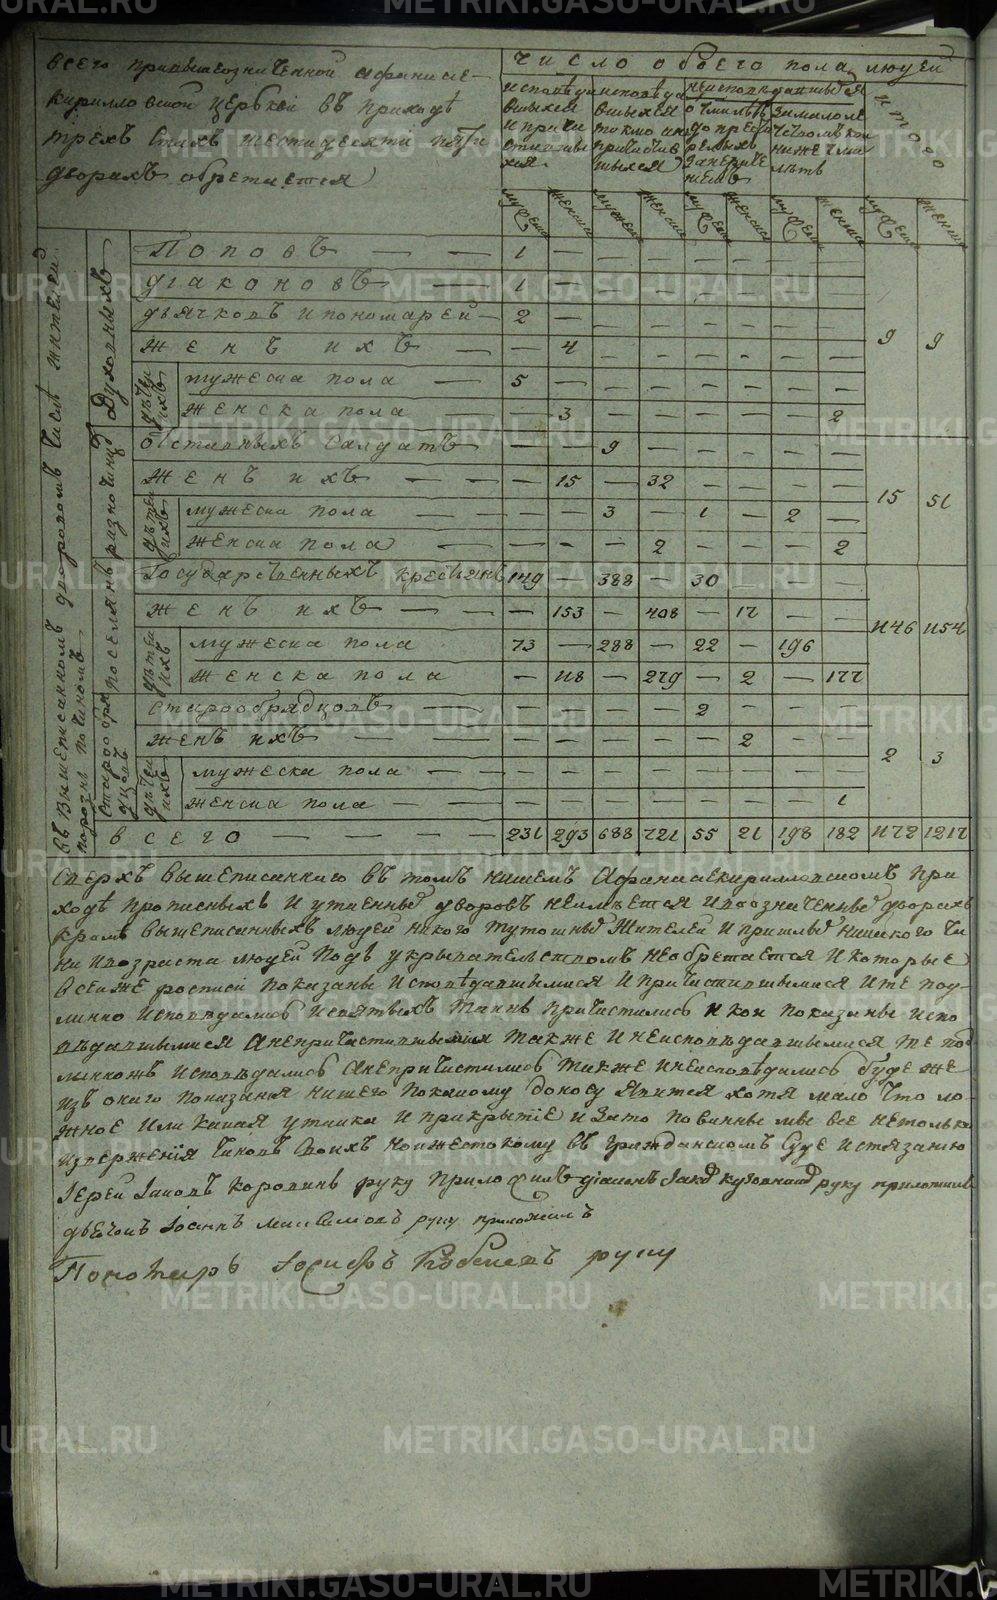 всего при вышеозначенной афанасие-
кирилловской церкви въ приходѣ
трехъ стахъ шестидесяти пяти
дворахъ обретается
число обоего пола людей
исповѣдавшыхся и причастившыхся
исповѣдавшыхся токмо а не причастившыхся
неисповѣдавшыхся
итого
мужеска женска мужеска женска мужеска женска мужеска женска мужеска женска
въ вышеписанномъ
духовныхъ
Поповъ — — 1 — — — — — — —
діаконовъ — 1 — — — — — — —
дьячковъ и пономарей — 2 — — — — — — —
женъ ихъ — — 4 — — — — — — 9 9
дѣтей ихъ
мужеска пола — 5 — — — — — — —
женска пола — 3 — — — — — 2
разночинцовъ
отставныхъ салдатъ — — 9 — — — — —
женъ ихъ — — — 15 — 32 — — — — 15 51
дѣтей ихъ
мужеска пола — — — 3 — 1 — 2 —
женска пола — — — — 2 — — — 2
поселянъ
Государственныхъ крестьянъ 149 — 388 — 30 — — —
женъ ихъ — — — 153 — 408 — 17 — — 1146 1154
дѣтей ихъ
мужеска пола 73 — 288 — 22 — 196
женска пола — 118 — 279 — 2 — 177
старообрядцовъ
старообрядцовъ — — — — — 2 — — —
женъ ихъ — — — — — — 2 — — 2 3
дѣтей ихъ
мужеска пола — — — — — — — — —
женска пола — — — — — — — — 1
всего — — — — 231 293 688 721 55 21 198 182 1172 1217
Сверхъ вышеписанного въ томъ нашемъ Афанасиекирилловскомъ при
ходѣ прописныхъ и утаенныхъ дворовъ неимѣется и въозначенныхъ дворахъ
кромѣ вышеписанныхъ людей никого тутошныхъ жителей и пришлыхъ никакого чи
на и возраста людей подъ укрывательствомъ необретается и которые
въ сей же росписи показаны исповѣдавшымися и причастившымися и те под
линно исповѣдались и святыхъ таинъ причастились и кои показаны испо
вѣдавшымися а непричастившымися также и неисповѣдавшымися те по
длинножъ исповѣдались а непричастились также и неисповѣдались буде же
изъ оного показания нашего по какому доносу явится хотя мало что ло
жное или какая утайка и прикрытіе и зато повинны мы все нетолько
извержения чиновъ своихъ но и жестокому въ гражданскомъ суде истязанию
Іерей Іаковъ Коровинъ руку приложилъ діаконъ руку приложилъ
дьячокъ Іоаннъ Максимовъ руку приложилъ
Пономарь Іосифъ руку
METRIKI.GASO-URAL.RU